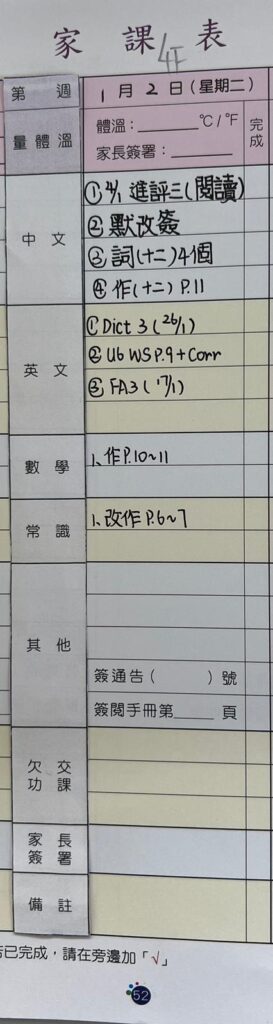 家課表
4F
第 週
1月2日(星期二)
量體溫
體溫：______°C/°F
家長簽署：______
完成
中文
① 4/1 進評三(閱讀)
② 默改簽
③ 詞(十二)4個
④ 作(十二) P.11
英文
① Dict 3 (26/1)
② U6 WS P.9 + Corr
③ FA3 (17/1)
數學
1、作P.10~11
常識
1、改作 P.6~7
其他
簽通告( )號
簽閱手冊第____頁
欠交功課
家長簽署
備註
已完成，請在旁邊加「√」
52